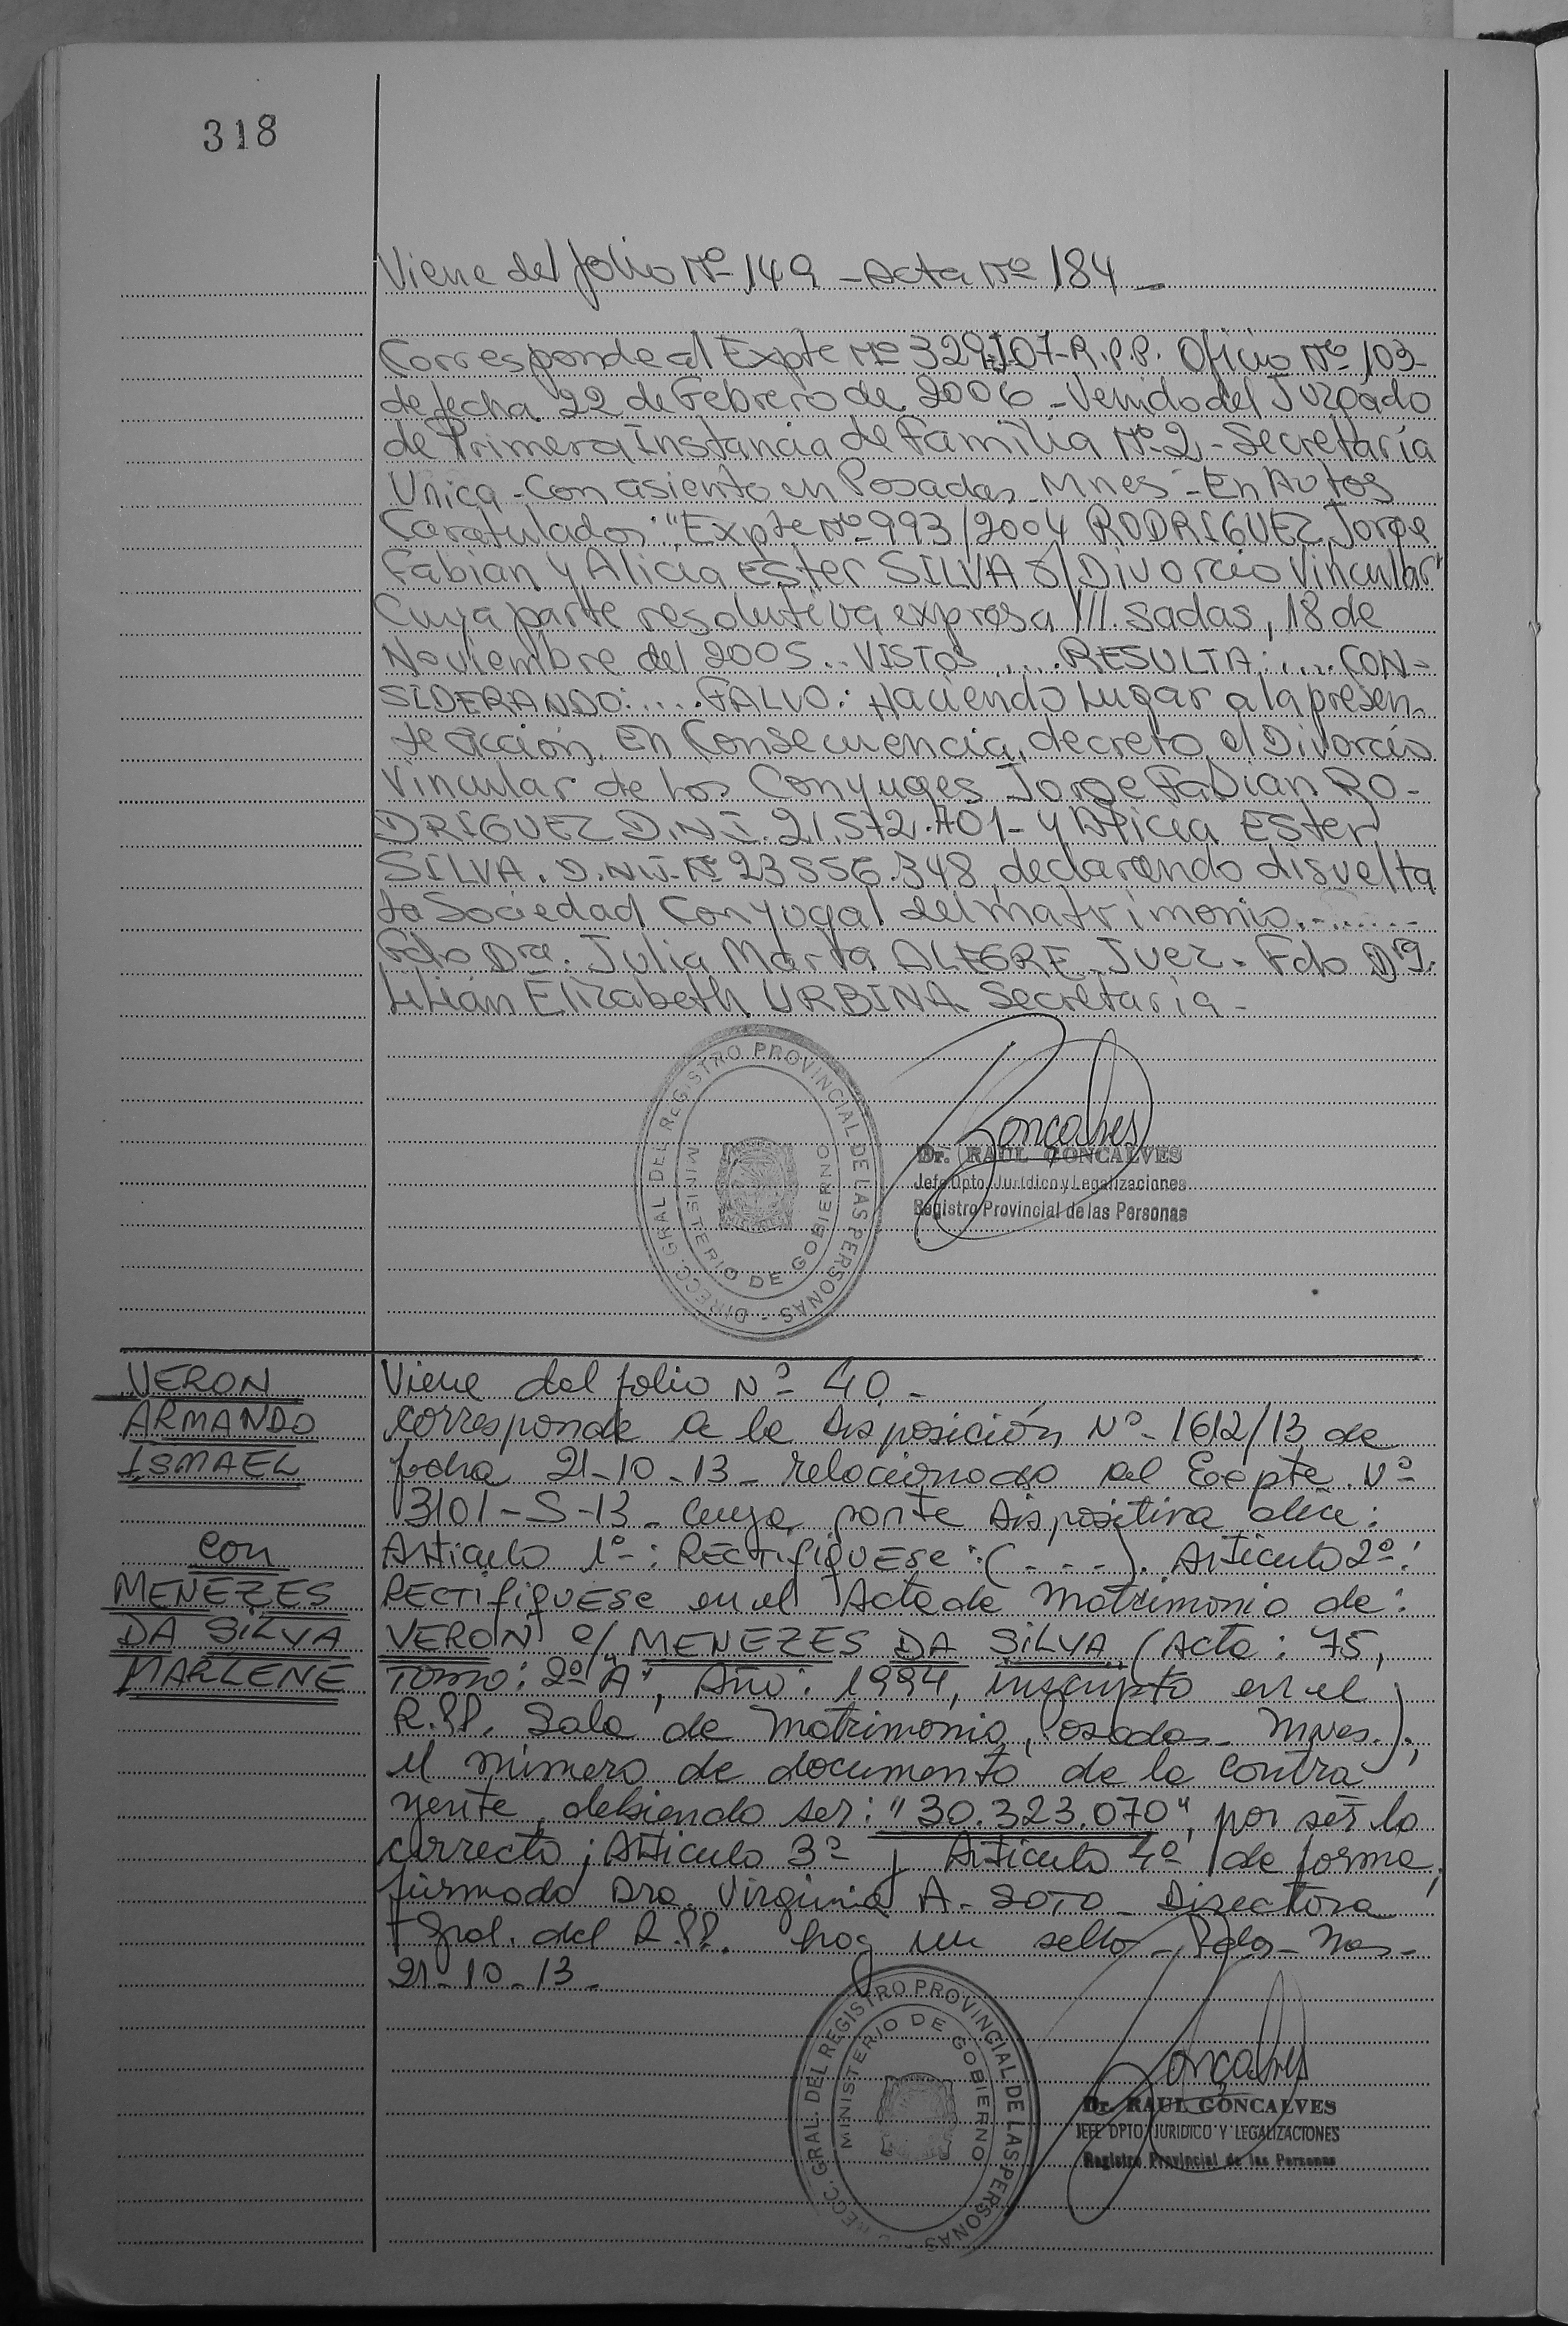 318
Viene del folio Nº 149 - Acta Nº 184 -
Corresponde al Expte Nº R.P.P. Oficio Nº 103-
de fecha 22 de Febrero de 2006 - Venido del Juzgado
de Primera Instancia de Familia Nº 2 - Secretaría
Unica - Con asiento en Posadas Mnes - En Autos
Caratulados: "Expte Nº 993/2004 RODRIGUEZ Jorge
Fabian y Alicia Ester SILVA s/ Divorcio Vincular"
Cuya parte resolutiva expresa ///. sadas, 18 de
Noviembre del 2005.. VISTOS .... RESULTA: .... CON-
SIDERANDO: .... FALLO: Haciendo Lugar a la presen-
te acción. En Consecuencia, decreto el Divorcio
Vincular de los Conyuges Jorge Fabian RO-
DRIGUEZ D.N.I. 21.572.701- y Alicia Ester
SILVA. D.N.I. Nº 23.556.348, declarando disuelta
la Sociedad Conyugal del matrimonio.-.......-
Fdo Dra. Julia Marta ALEGRE - Juez - Fdo Dra.
Lilian Elizabeth URBINA Secretaria -
DIRECC. GRAL. DEL REGISTRO PROVINCIAL DE LAS PERSONAS -
MINISTERIO DE GOBIERNO
Goncalves
Dr. RAUL GONCALVES
Jefe Dpto. Jurídico y Legalizaciones
Registro Provincial de las Personas
VERON
ARMANDO
ISMAEL
con
MENEZES
DA SILVA
MARLENE
Viene del folio Nº 40 -
Corresponde a la Disposición Nº 1612/13 de
fecha 21-10-13 - relacionado al Expte. Nº
3101-S-13 - cuya parte Dispositiva dice:
Articulo 1º: RECTIFIQUESE: (---). Articulo 2º:
RECTIFIQUESE en el Acta de Matrimonio de:
VERON c/ MENEZES DA SILVA (Acta: 75,
Tomo: 2º "A", Año: 1994, inscripto en el
R.P.P. Sala de Matrimonio, Posadas - Mnes.);
el número de documento de la contra
yente, debiendo ser: "30.323.070", por ser lo
correcto; Articulo 3º y Articulo 4º de forma,
firmado Dra. Virginia A. SOTO - Directora
Gral. del R.P.P. hay un sello - Pdas - Mnes -
21-10-13 -
DIRECC. GRAL. DEL REGISTRO PROVINCIAL DE LAS PERSONAS
MINISTERIO DE GOBIERNO
Goncalves
Dr. RAUL GONCALVES
JEFE DPTO. JURIDICO Y LEGALIZACIONES
Registro Provincial de las Personas